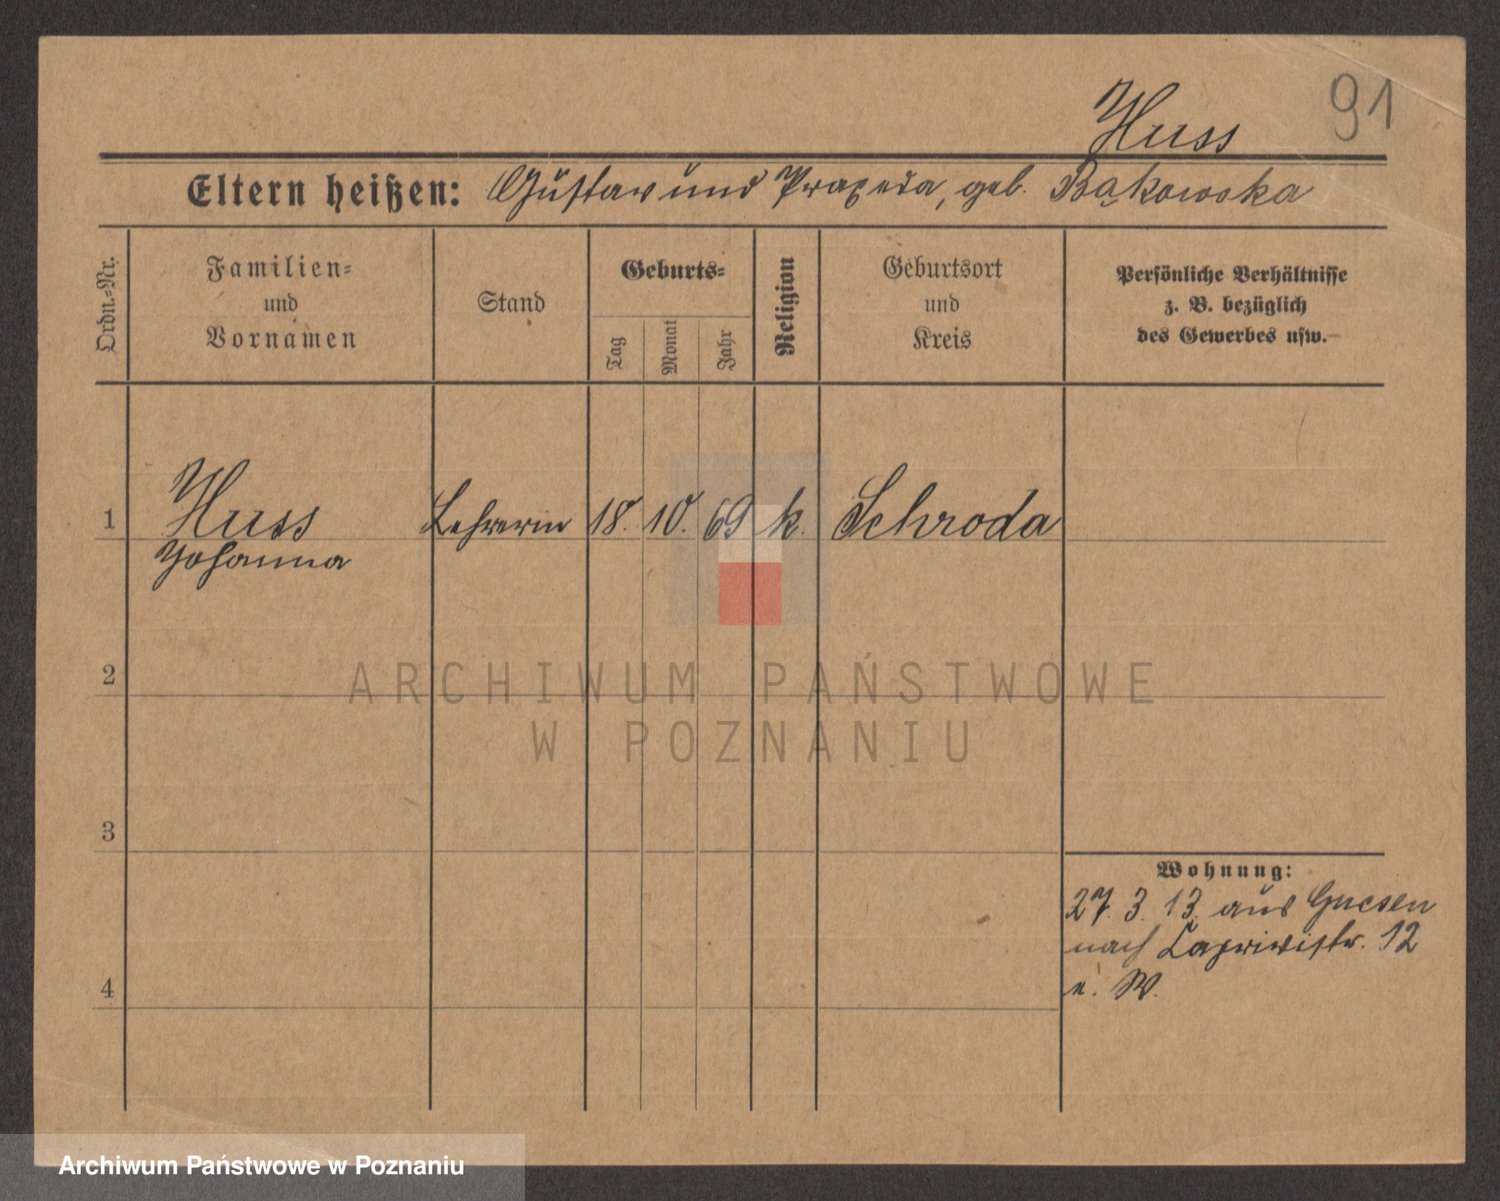 91
Huss
Eltern heißen: Gustav und Praxeda, geb. Bąkowska
Ordn.-Nr.
Familien-
und
Vornamen
Stand
Geburts-
Tag
Monat
Jahr
Religion
Geburtsort
und
Kreis
Persönliche Verhältnisse
z. B. bezüglich
des Gewerbes usw.
1 Huss Lehrerin 18. 10. 69 k. Schroda
Johanna
2
3
4
Wohnung:
27. 3. 13. aus Gnesen
nach Caprivistr. 12
e. W.
ARCHIWUM PAŃSTWOWE
W POZNANIU
Archiwum Państwowe w Poznaniu